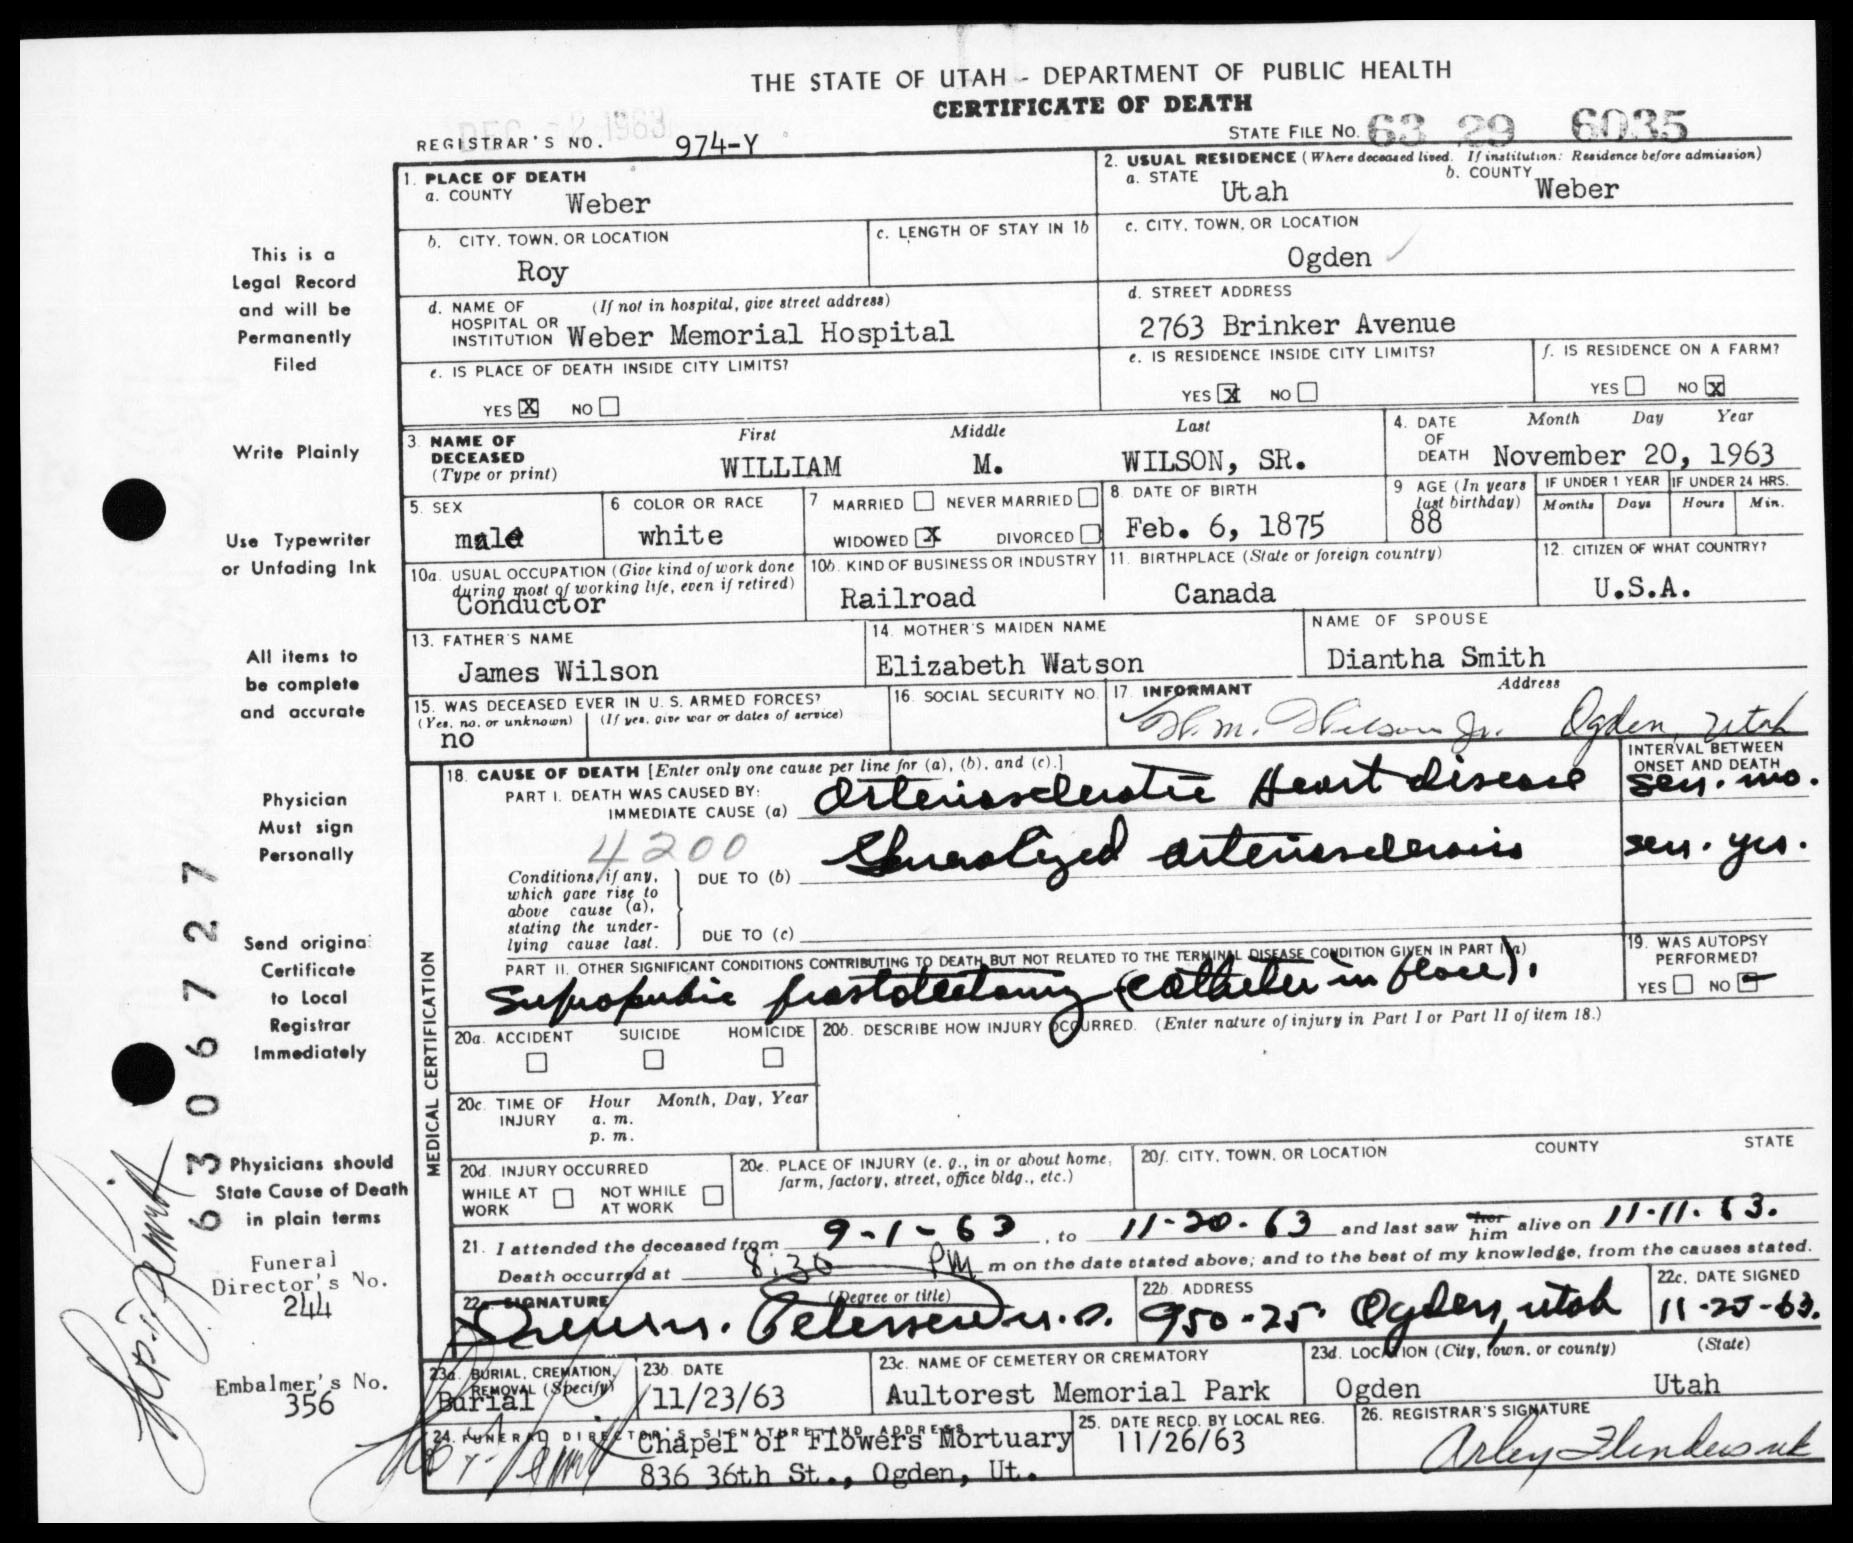 THE STATE OF UTAH - DEPARTMENT OF PUBLIC HEALTH
CERTIFICATE OF DEATH
DEC -2 1963
REGISTRAR'S NO. 974-Y
STATE FILE NO. 63 29 6035
1. PLACE OF DEATH
a. COUNTY Weber
2. USUAL RESIDENCE (Where deceased lived. If institution: Residence before admission)
a. STATE Utah b. COUNTY Weber
b. CITY, TOWN, OR LOCATION Roy
c. LENGTH OF STAY IN 1b
c. CITY, TOWN, OR LOCATION Ogden
d. NAME OF HOSPITAL OR INSTITUTION (If not in hospital, give street address) Weber Memorial Hospital
d. STREET ADDRESS 2763 Brinker Avenue
e. IS PLACE OF DEATH INSIDE CITY LIMITS? YES X NO
e. IS RESIDENCE INSIDE CITY LIMITS? YES X NO
f. IS RESIDENCE ON A FARM? YES NO X
3. NAME OF DECEASED (Type or print) First Middle Last
WILLIAM M. WILSON, SR.
4. DATE OF DEATH Month Day Year
November 20, 1963
5. SEX male
6 COLOR OR RACE white
7 MARRIED NEVER MARRIED
WIDOWED X DIVORCED
8. DATE OF BIRTH Feb. 6, 1875
9 AGE (In years last birthday) 88
IF UNDER 1 YEAR Months Days
IF UNDER 24 HRS. Hours Min.
10a. USUAL OCCUPATION (Give kind of work done during most of working life, even if retired) Conductor
10b. KIND OF BUSINESS OR INDUSTRY Railroad
11. BIRTHPLACE (State or foreign country) Canada
12. CITIZEN OF WHAT COUNTRY? U.S.A.
13. FATHER'S NAME James Wilson
14. MOTHER'S MAIDEN NAME Elizabeth Watson
NAME OF SPOUSE Diantha Smith
15. WAS DECEASED EVER IN U. S. ARMED FORCES?
(Yes, no, or unknown) (If yes, give war or dates of service)
no
16. SOCIAL SECURITY NO.
17. INFORMANT Address
W. M. Wilson Jr. Ogden, Utah
18. CAUSE OF DEATH [Enter only one cause per line for (a), (b), and (c).]
INTERVAL BETWEEN ONSET AND DEATH
PART I. DEATH WAS CAUSED BY:
IMMEDIATE CAUSE (a) Arteriosclerotic Heart disease sev. mo.
4200
Conditions, if any, which gave rise to above cause (a), stating the underlying cause last.
DUE TO (b) Generalized arteriosclerosis sev. yrs.
DUE TO (c)
PART II. OTHER SIGNIFICANT CONDITIONS CONTRIBUTING TO DEATH BUT NOT RELATED TO THE TERMINAL DISEASE CONDITION GIVEN IN PART I (a)
Suprapubic prostatectomy (catheter in place).
19. WAS AUTOPSY PERFORMED? YES NO
MEDICAL CERTIFICATION
20a. ACCIDENT SUICIDE HOMICIDE
20b. DESCRIBE HOW INJURY OCCURRED. (Enter nature of injury in Part I or Part II of item 18.)
20c. TIME OF INJURY Hour Month, Day, Year
a. m.
p. m.
20d. INJURY OCCURRED
WHILE AT WORK NOT WHILE AT WORK
20e. PLACE OF INJURY (e. g., in or about home, farm, factory, street, office bldg., etc.)
20f. CITY, TOWN, OR LOCATION COUNTY STATE
21. I attended the deceased from 9-1-63, to 11-20-63 and last saw her him alive on 11-11-63.
Death occurred at 8:30 PM m on the date stated above; and to the best of my knowledge, from the causes stated.
22a. SIGNATURE (Degree or title)
Petersen M.D.
22b. ADDRESS 950-25 Ogden, Utah
22c. DATE SIGNED 11-25-63.
23a. BURIAL, CREMATION, REMOVAL (Specify) Burial
23b. DATE 11/23/63
23c. NAME OF CEMETERY OR CREMATORY Aultorest Memorial Park
23d. LOCATION (City, town, or county) (State)
Ogden Utah
24. FUNERAL DIRECTOR'S SIGNATURE AND ADDRESS
Chapel of Flowers Mortuary
836 36th St., Ogden, Ut.
25. DATE RECD. BY LOCAL REG. 11/26/63
26. REGISTRAR'S SIGNATURE
Arley Flinders
This is a
Legal Record
and will be
Permanently
Filed
Write Plainly
Use Typewriter
or Unfading Ink
All items to
be complete
and accurate
Physician
Must sign
Personally
Send original
Certificate
to Local
Registrar
Immediately
Physicians should
State Cause of Death
in plain terms
Funeral
Director's No.
244
Embalmer's No.
356
6306727